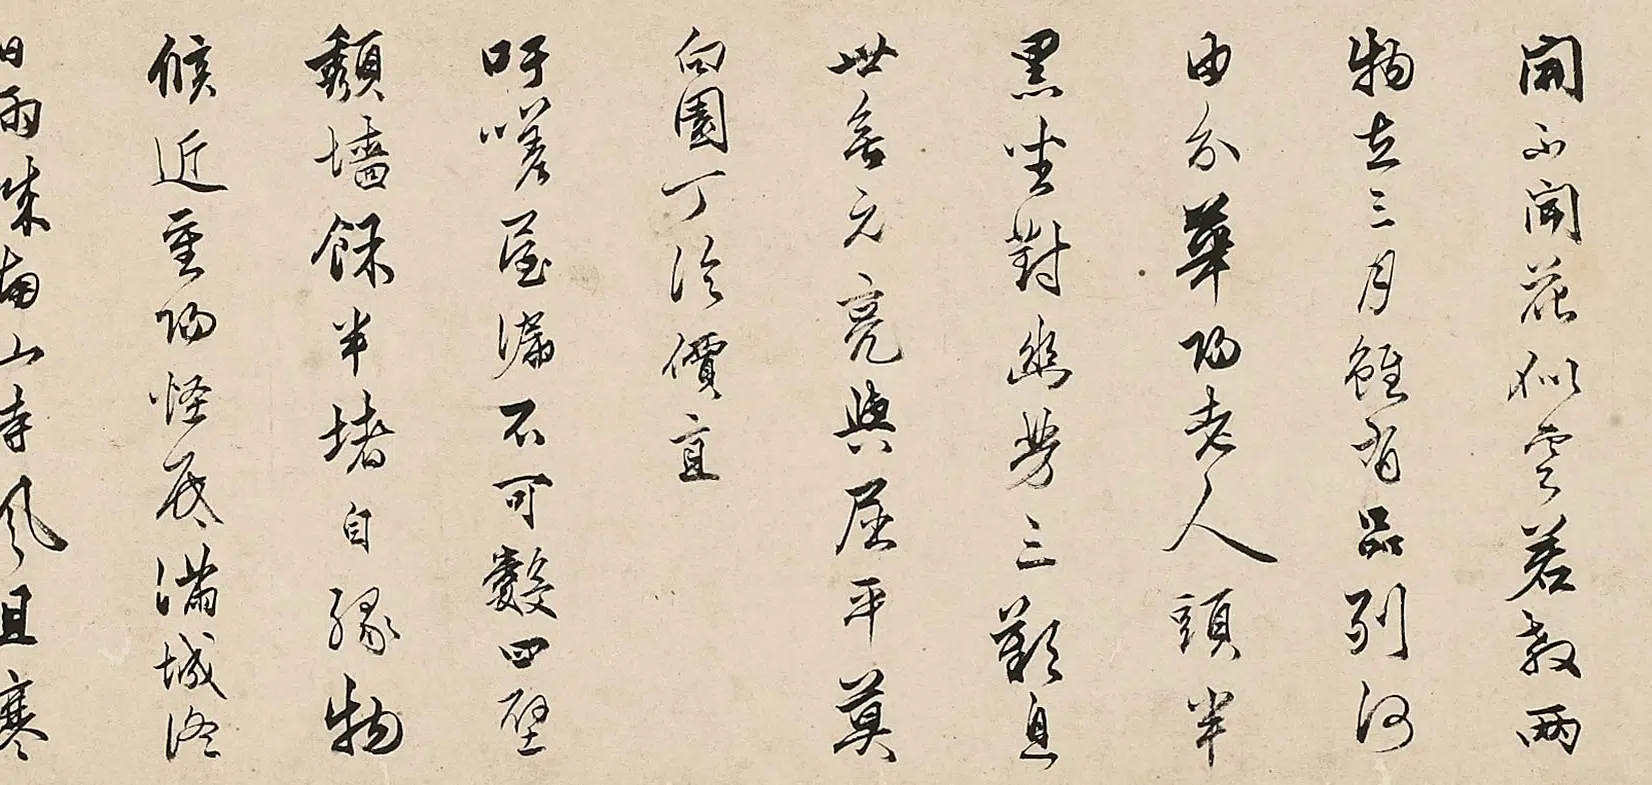 聞不聞花似雲若教兩
物在三月雖有品列何
由分華陽老人頭半
黑坐對幽芳三歎息
世無元亮與屈平莫
向園丁論價直
吁嗟屋漏不可數四壁
頹墻餘半堵自緣物
候近重陽怪底滿城終
日雨城南山寺風且寒